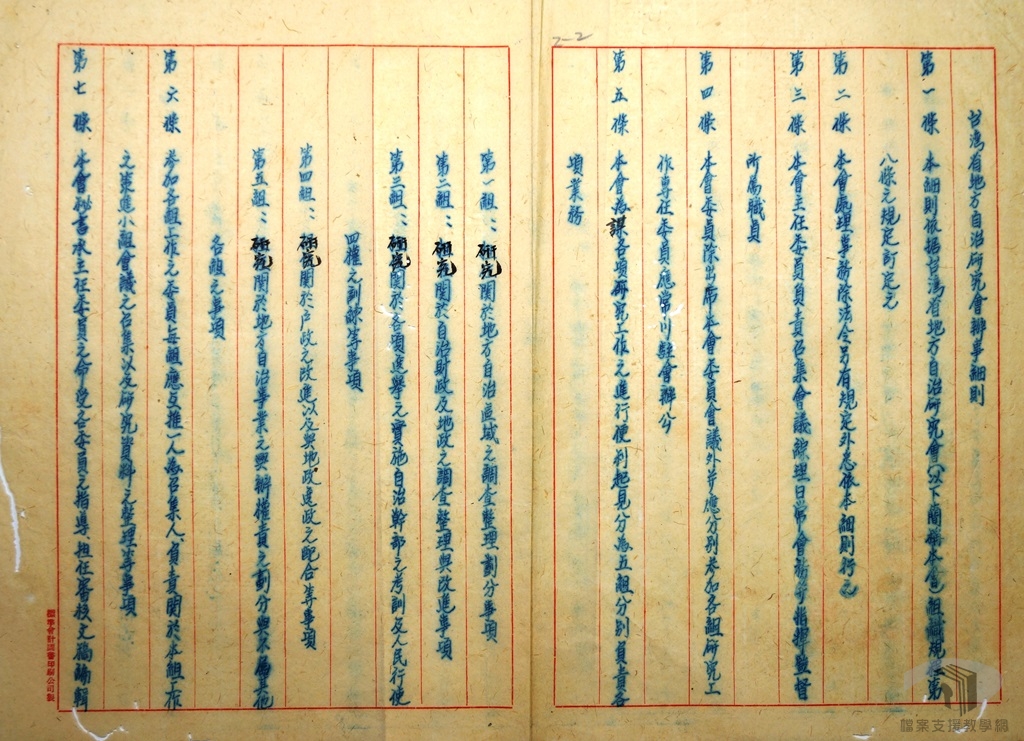 2-2
台灣省地方自治研究會辦事細則
第一條 本細則依據台灣省地方自治研究會(以下簡稱本會)組織規程第
八條之規定訂定之
第二條 本會處理事務除法令另有規定外悉依本細則行之
第三條 本會主任委員負責召集會議綜理日常會務並指揮監督
所屬職員
第四條 本會委員除出席本會委員會議外並應分別參加各組研究工
作專任委員應常川駐會辦公
第五條 本會為謀各項研究工作之進行便利起見分為五組分別負責各
項業務
第一組:研究關於地方自治區域之調查整理劃分事項
第二組:研究關於自治財政及地政之調查整理與改進事項
第三組:研究關於各項選舉之實施自治幹部之考訓及人民行使
四權之訓練等事項
第四組:研究關於户政之改進以及與地政警政之配合等事項
第五組:研究關於地方自治事業之興辦權責之劃分與不屬其他
各組之事項
第六條 參加各組工作之委員每組應互推一人為召集人負責關於本組工作
之策進小組會議之召集以及研究資料之整理等事項
第七條 本會秘書承主任委員之命受各委員之指導担任審核文稿編輯
檔案支援教學網